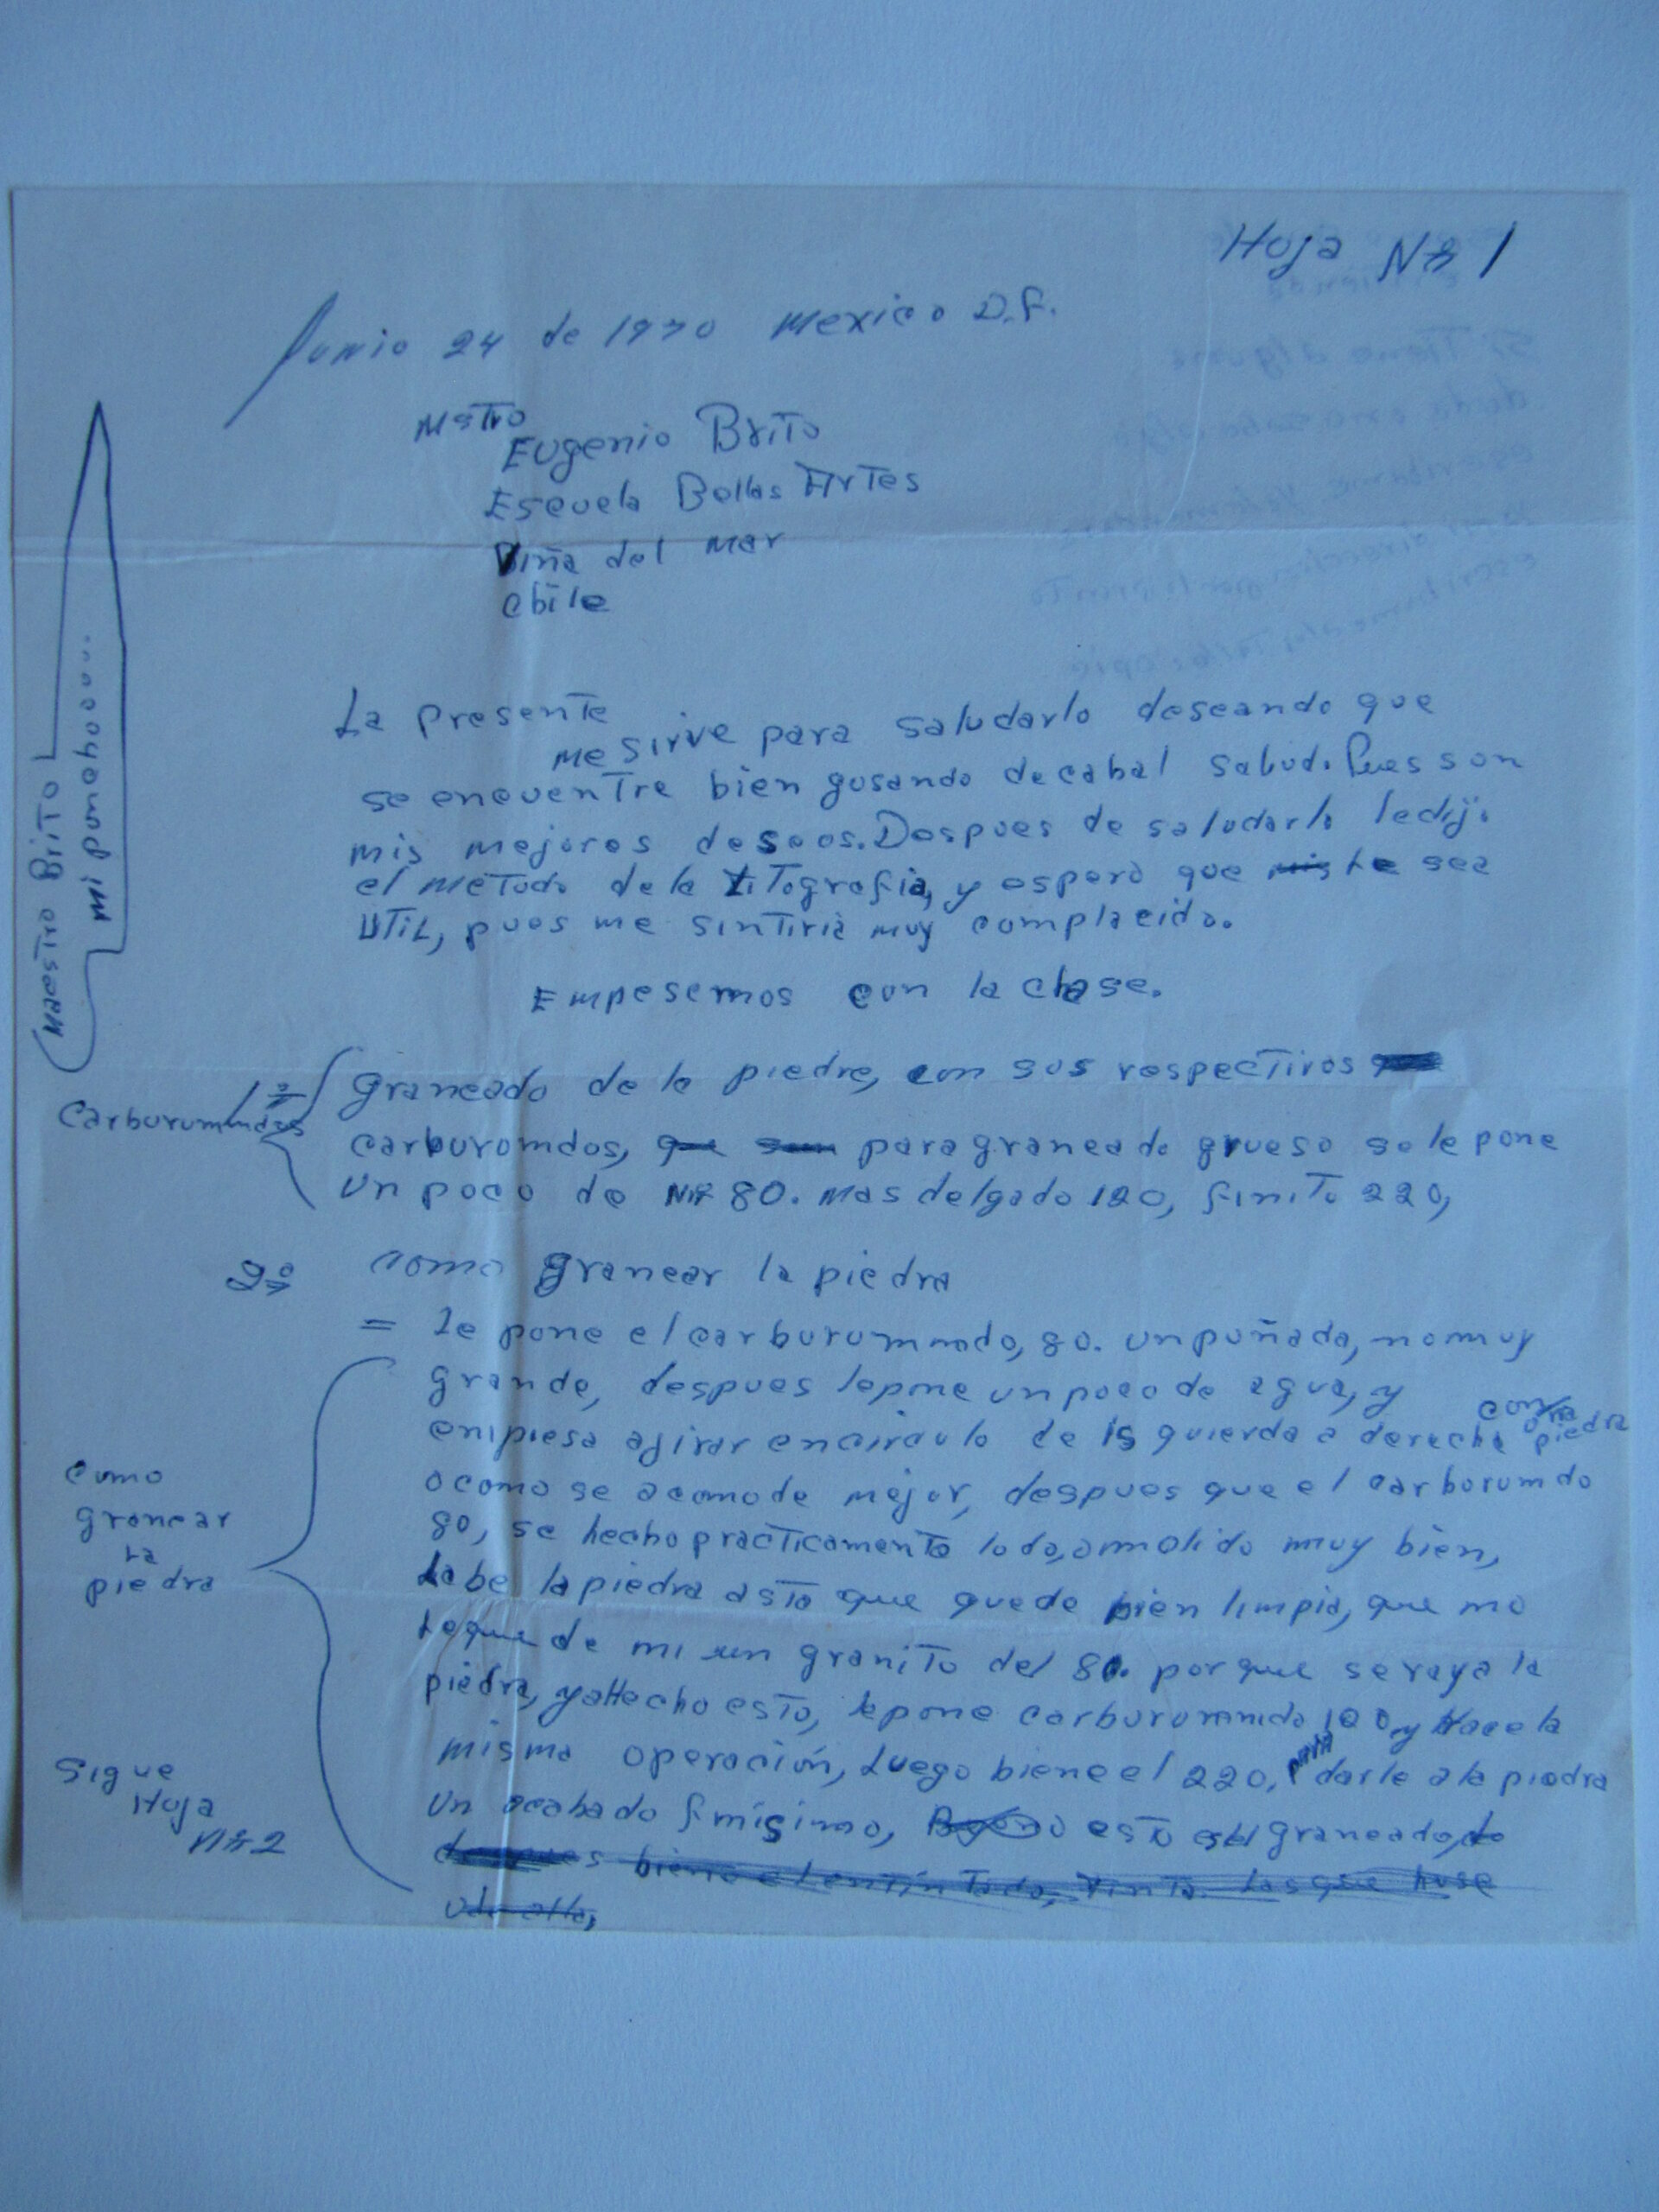 Hoja Nº 1
Junio 24 de 1970 Mexico D.F.
Mstro
Eugenio Brito
Escuela Bellas Artes
Viña del Mar
Chile
Maestro Brito
mi ponchoooo...
La presente
me sirve para saludarlo deseando que
se encuentre bien gosando de cabal salud. Pues son
mis mejores deseos. Despues de saludarlo le dijo
el metodo de la Litografia, y espero que le sea
util, pues me sintiria muy complacido.
Empesemos con la clase.
1º
Carburumndos
Graneado de la piedra, con sus respectivos
carburomdos, que son para graneado grueso se le pone
un poco de Nº 80. mas delgado 120, finito 220,
2º como granear la piedra
= Le pone el carburumndo, 80. un puñado, no muy
grande, despues le pone un poco de agua, y
empiesa a jirar en circulo de isquierda a derecha con otra piedra
o como se acomode mejor, despues que el carborumdo
80, se hecho practicamente lodo, o molido muy bien,
Labe la piedra asta que quede bien limpia, que no
le quede ni un granito del 80. porque se raya la
piedra, ya Hecho esto, le pone carburumndo 120 y Hace la
misma operación, Luego biene el 220, para darle a la piedra
un acabado finísimo, Bueno esto es el graneado, de
despues biene el entintado, tinta Las que huse
como
granear
la
piedra
Sigue
Hoja
Nº 2